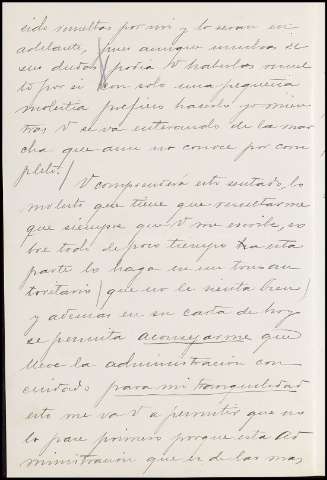 sido resueltas por mi y lo seran en
adelante, pues aunque muchas de
sus dudas podia V haberlas resuel
to por si con solo una pequeña
molestia prefiero hacerlo yo mien
tras V se va enterando de la mar
cha que aun no conoce por com
pleto.
V comprenderá esto sentado, lo
molesto que tiene que resultarme
que siempre que V me escribe, so
bre todo de poco tiempo ha esta
parte lo haga en un tono au
toritario (que no le sienta bien)
y ademas en su carta de hoy
se permita aconsejarme que
lleve la administración con
cuidado para mi tranquilidad
esto me va V a permitir que no
lo pase primero porque esta Ad
ministración que es de las mas